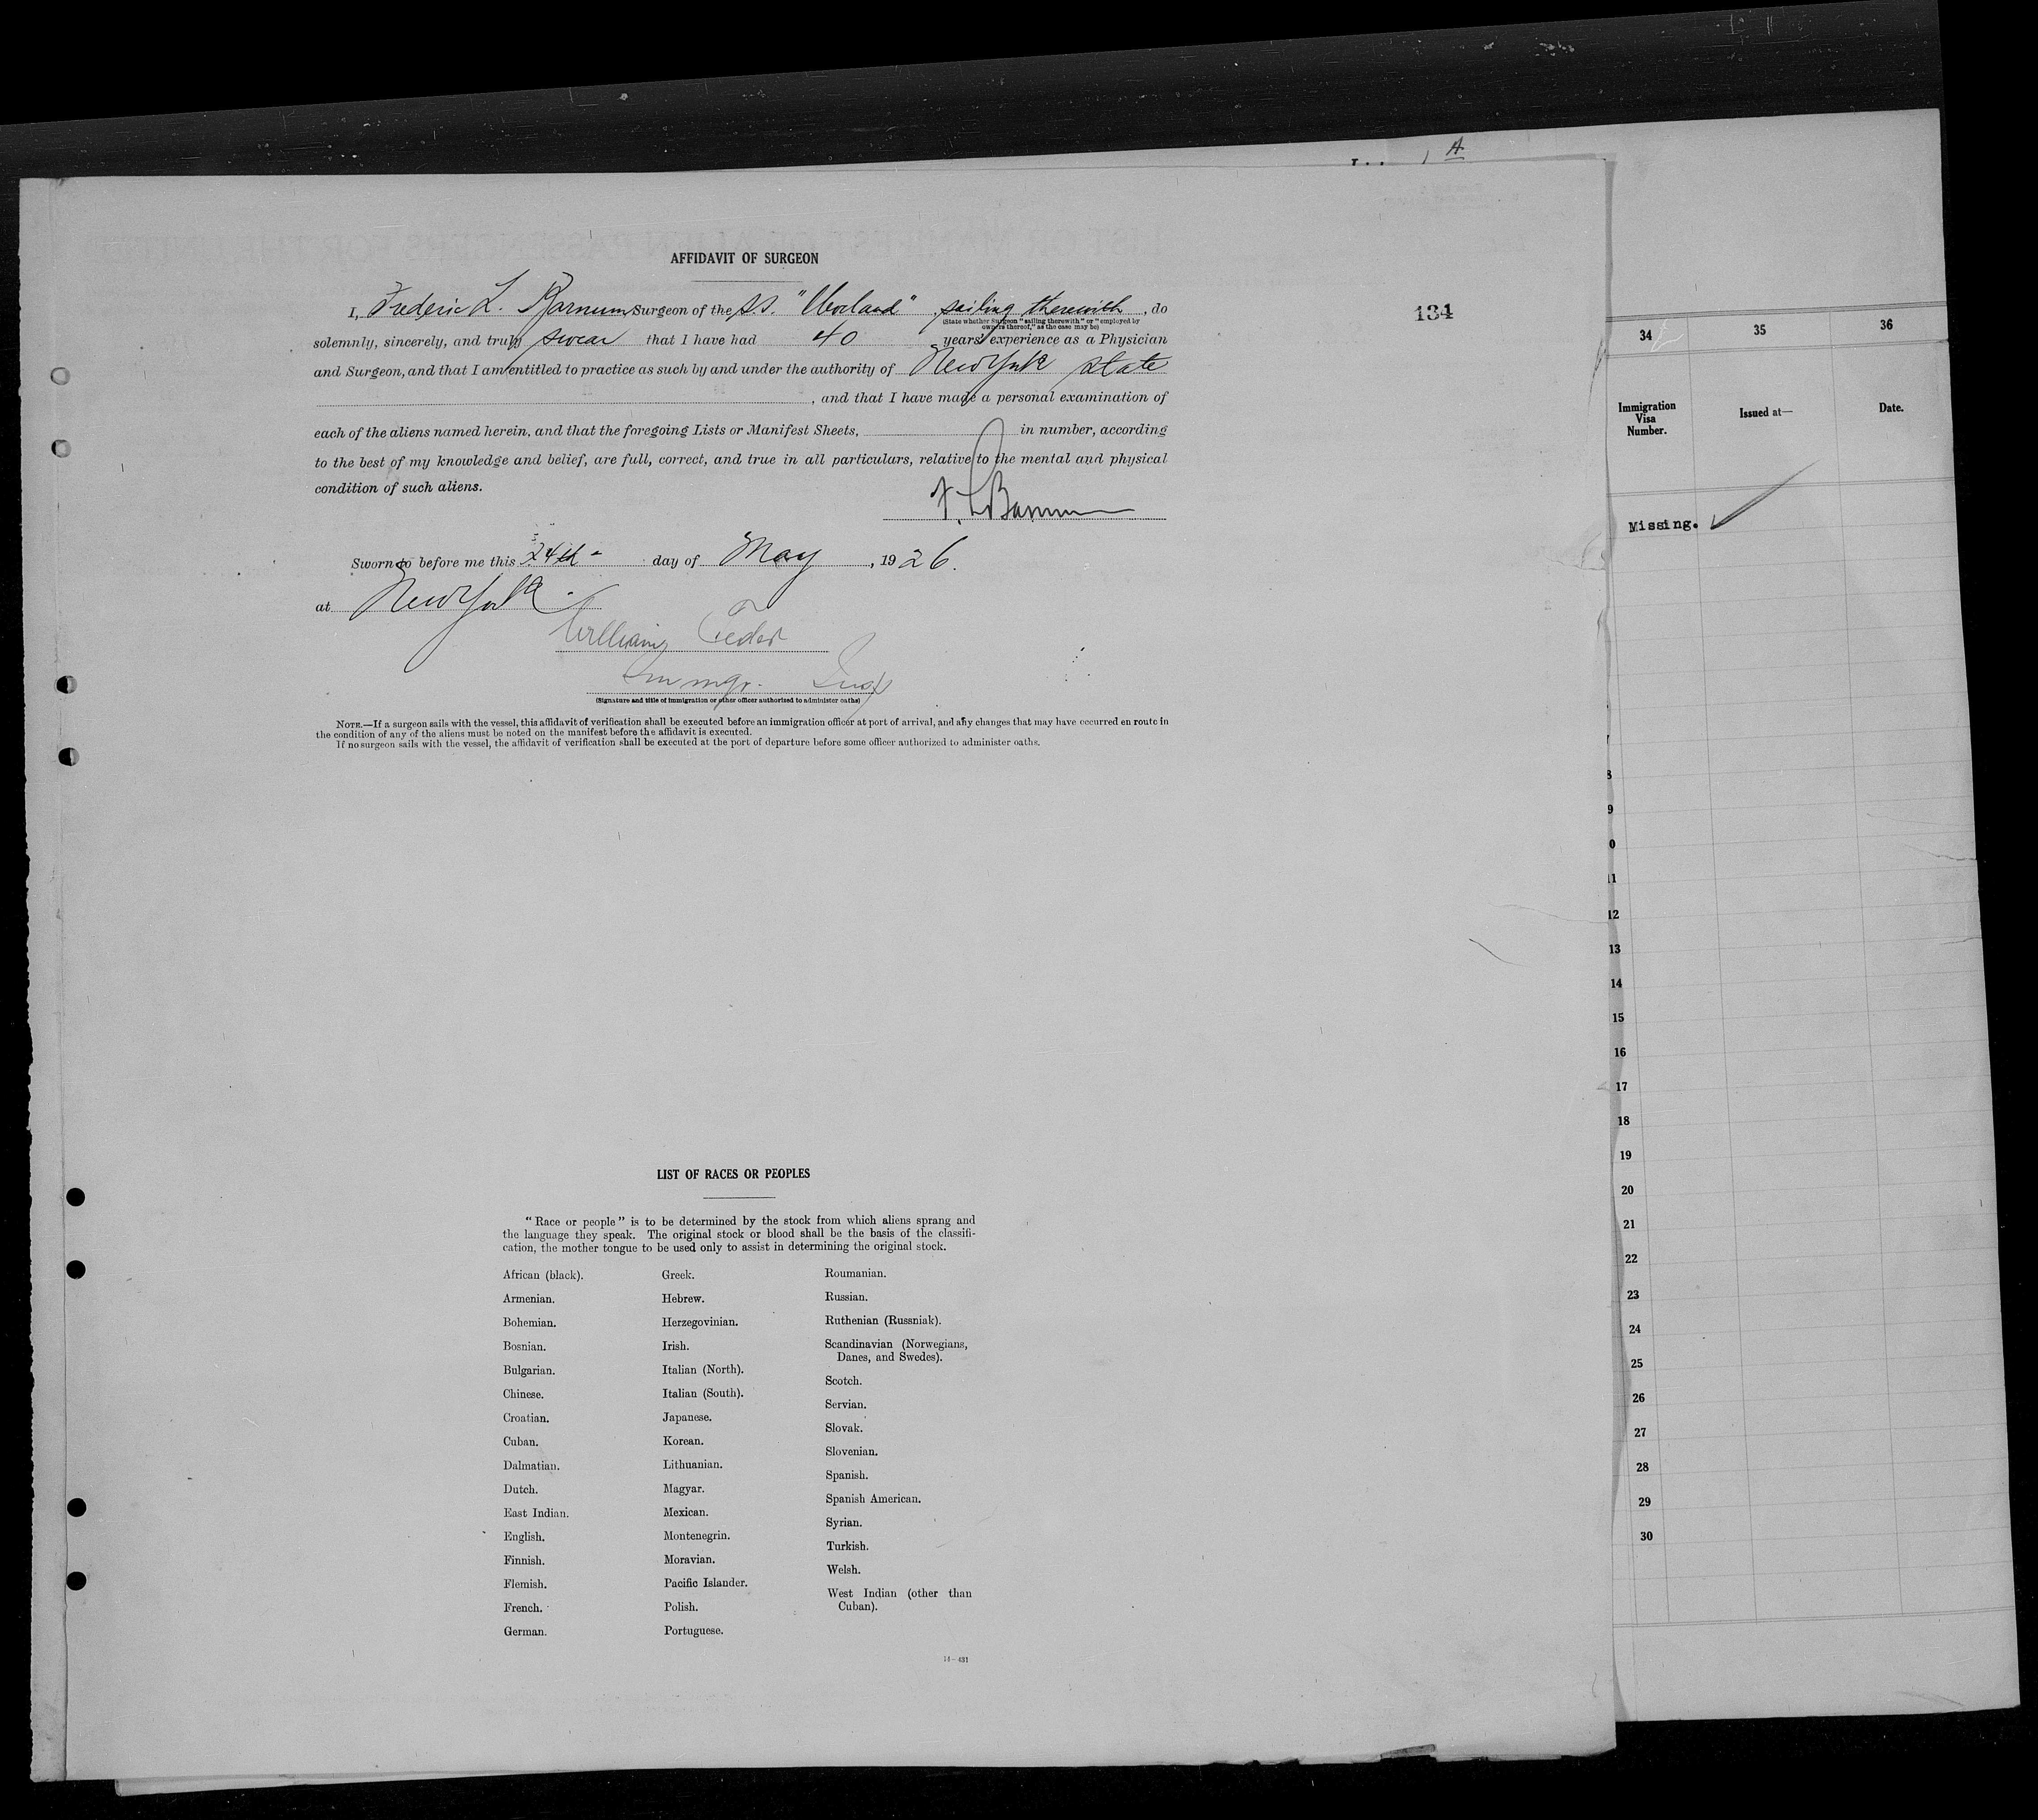 A
AFFIDAVIT OF SURGEON
I, Frederic L. Barnum Surgeon of the S.S. " " sailing therewith, do
(State whether Surgeon "sailing therewith" or "employed by
owners thereof," as the case may be)
solemnly, sincerely, and truly swear that I have had 40 years' experience as a Physician
and Surgeon, and that I am entitled to practice as such by and under the authority of New York State
, and that I have made a personal examination of
each of the aliens named herein, and that the foregoing Lists or Manifest Sheets, in number, according
to the best of my knowledge and belief, are full, correct, and true in all particulars, relative to the mental and physical
condition of such aliens.
F. L. Barnum
Sworn to before me this 24th day of May, 1926.
at New York.
William
Immgr. Insp
(Signature and title of immigration or other officer authorized to administer oaths)
NOTE.—If a surgeon sails with the vessel, this affidavit of verification shall be executed before an immigration officer at port of arrival, and any changes that may have occurred en route in
the condition of any of the aliens must be noted on the manifest before the affidavit is executed.
If no surgeon sails with the vessel, the affidavit of verification shall be executed at the port of departure before some officer authorized to administer oaths.
134
LIST OF RACES OR PEOPLES
"Race or people" is to be determined by the stock from which aliens sprang and
the language they speak. The original stock or blood shall be the basis of the classifi-
cation, the mother tongue to be used only to assist in determining the original stock.
African (black).
Armenian.
Bohemian.
Bosnian.
Bulgarian.
Chinese.
Croatian.
Cuban.
Dalmatian.
Dutch.
East Indian.
English.
Finnish.
Flemish.
French.
German.
Greek.
Hebrew.
Herzegovinian.
Irish.
Italian (North).
Italian (South).
Japanese.
Korean.
Lithuanian.
Magyar.
Mexican.
Montenegrin.
Moravian.
Pacific Islander.
Polish.
Portuguese.
Roumanian.
Russian.
Ruthenian (Russniak).
Scandinavian (Norwegians,
Danes, and Swedes).
Scotch.
Servian.
Slovak.
Slovenian.
Spanish.
Spanish American.
Syrian.
Turkish.
Welsh.
West Indian (other than
Cuban).
14—431
34 35 36
Immigration
Visa
Number.
Issued at—
Date.
Missing.
8
9
0
11
12
13
14
15
16
17
18
19
20
21
22
23
24
25
26
27
28
29
30